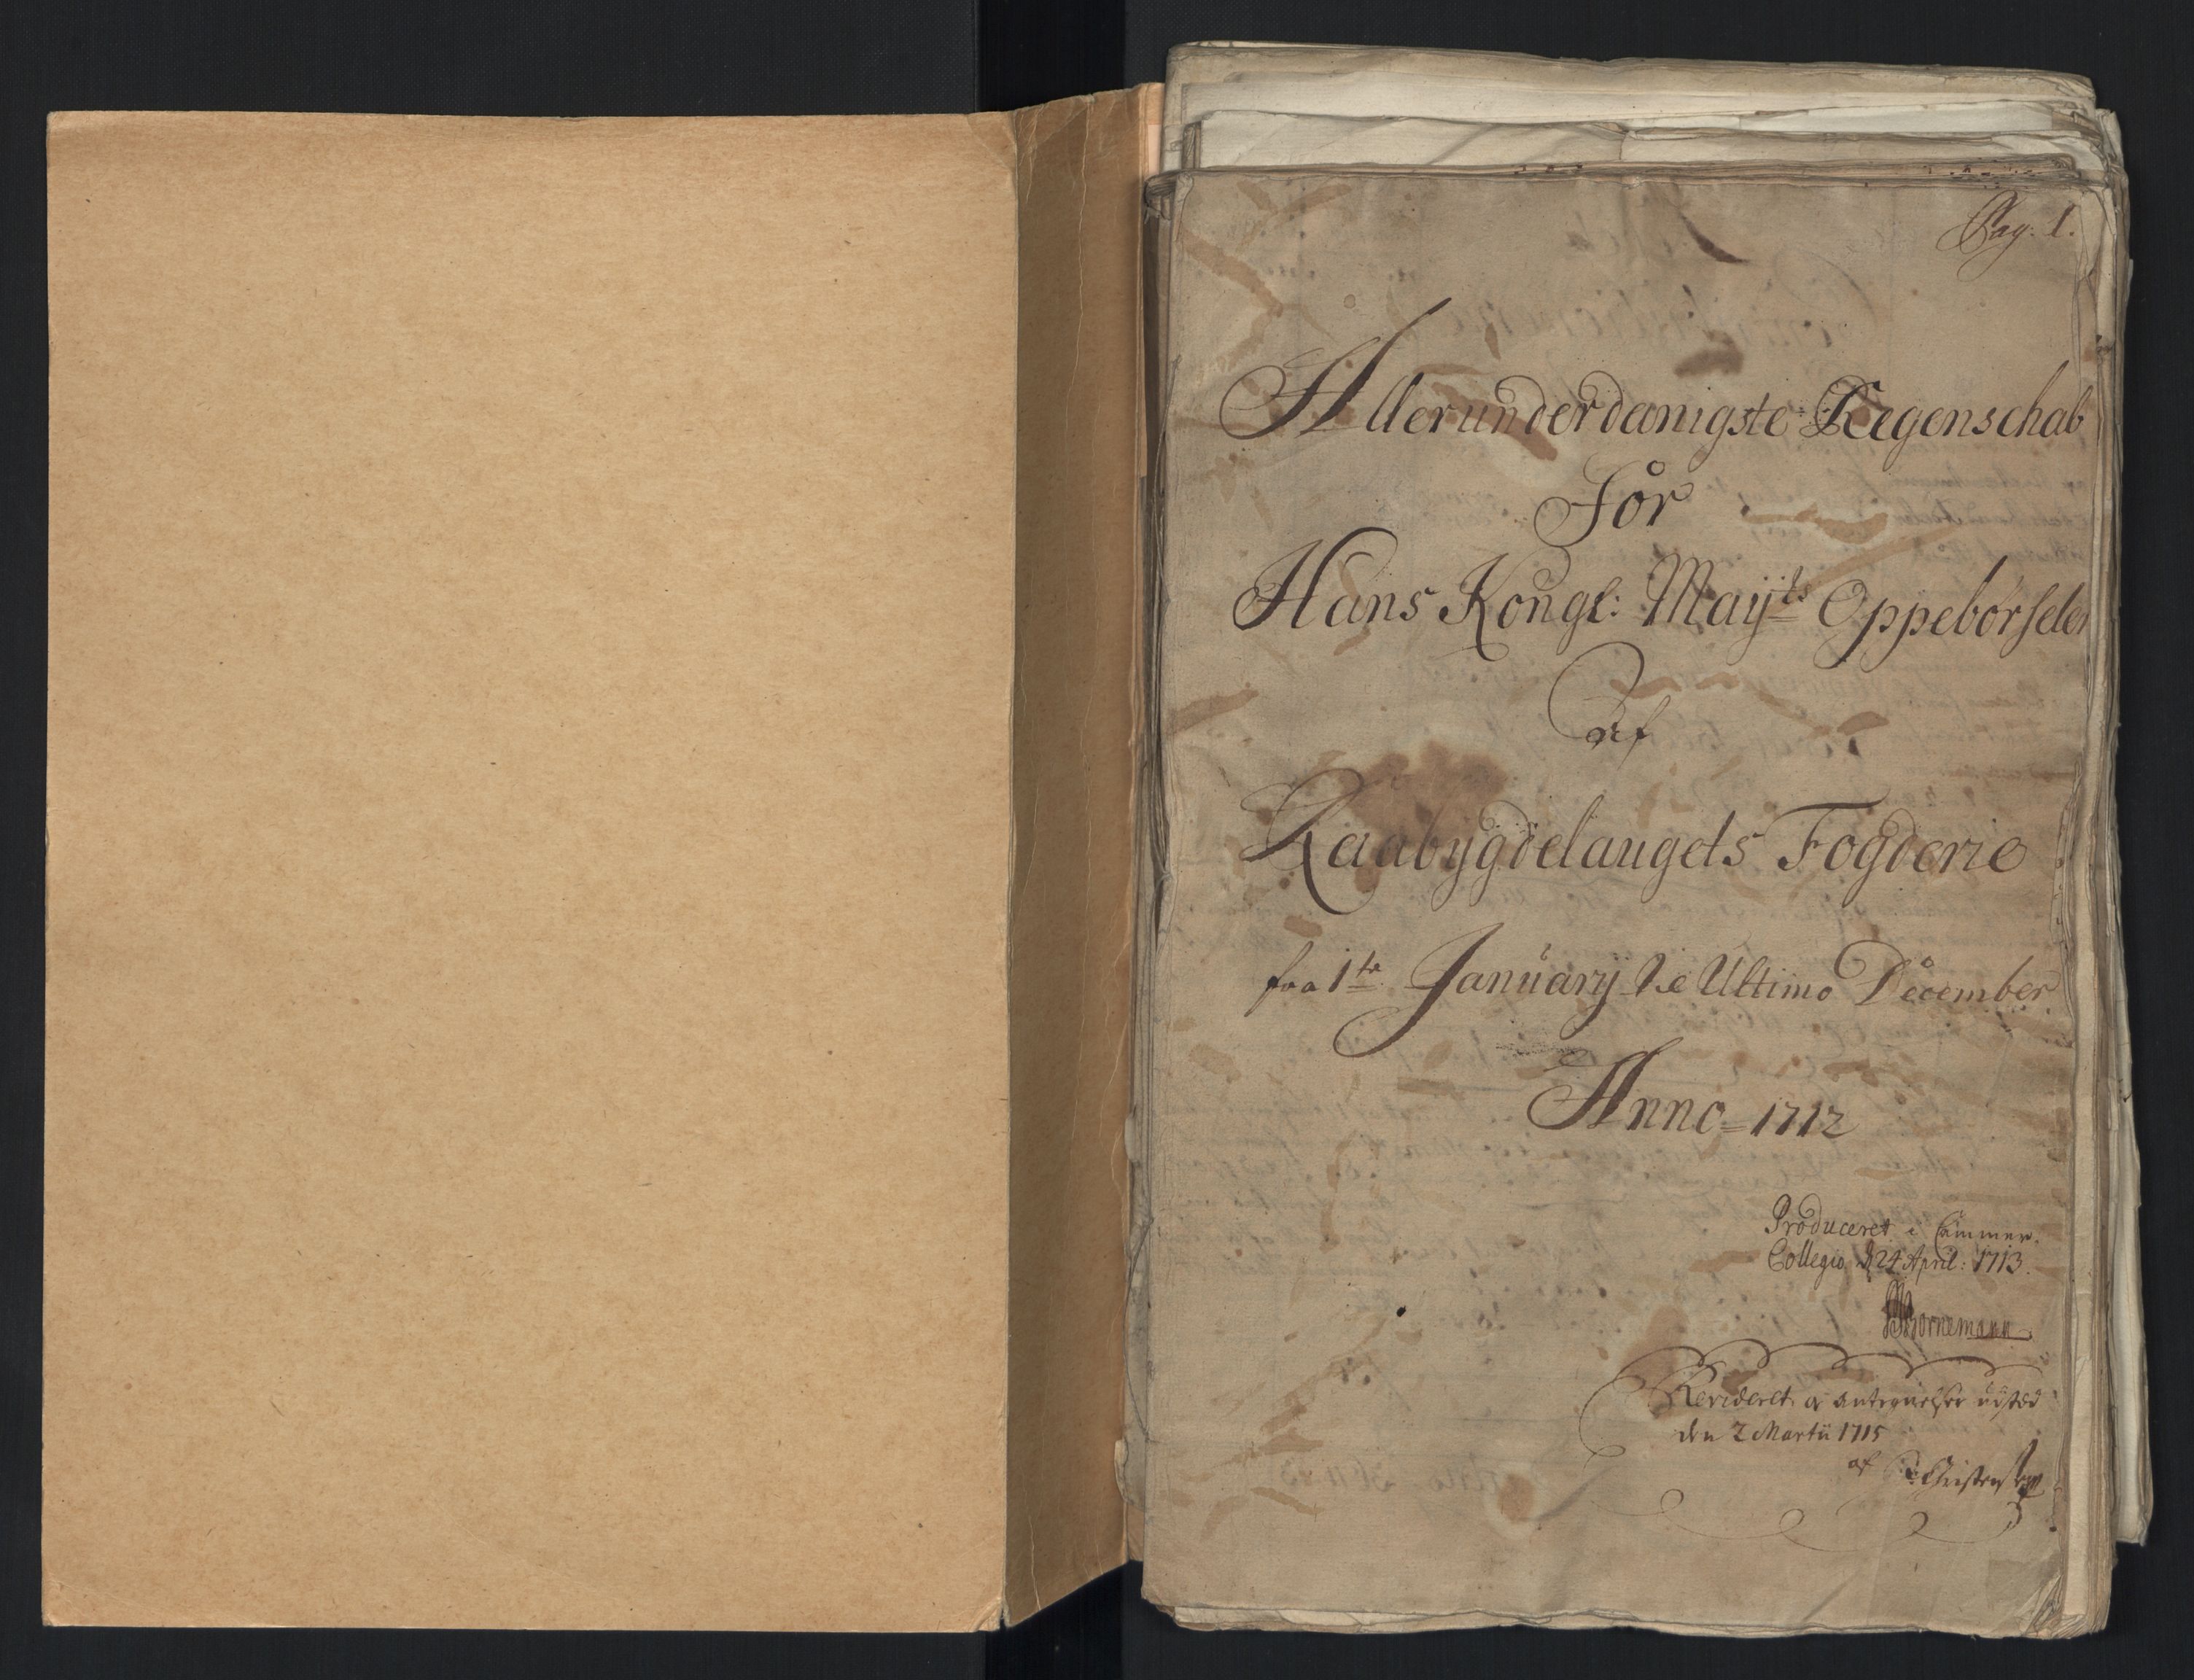 Pag. 1.
Allerunderdanigste Regenschab
För
Hans Kongl: Mayts Oppebörseler
af
Raabygdelaugets Fogderie
fra 1te January til Ultimo December
Anno = 1712
Produceret i Cammer
Collegio d 24 April: 1713.
Bornemann
Revideret og antegnelser udsted
den 2 Martii 1715
af